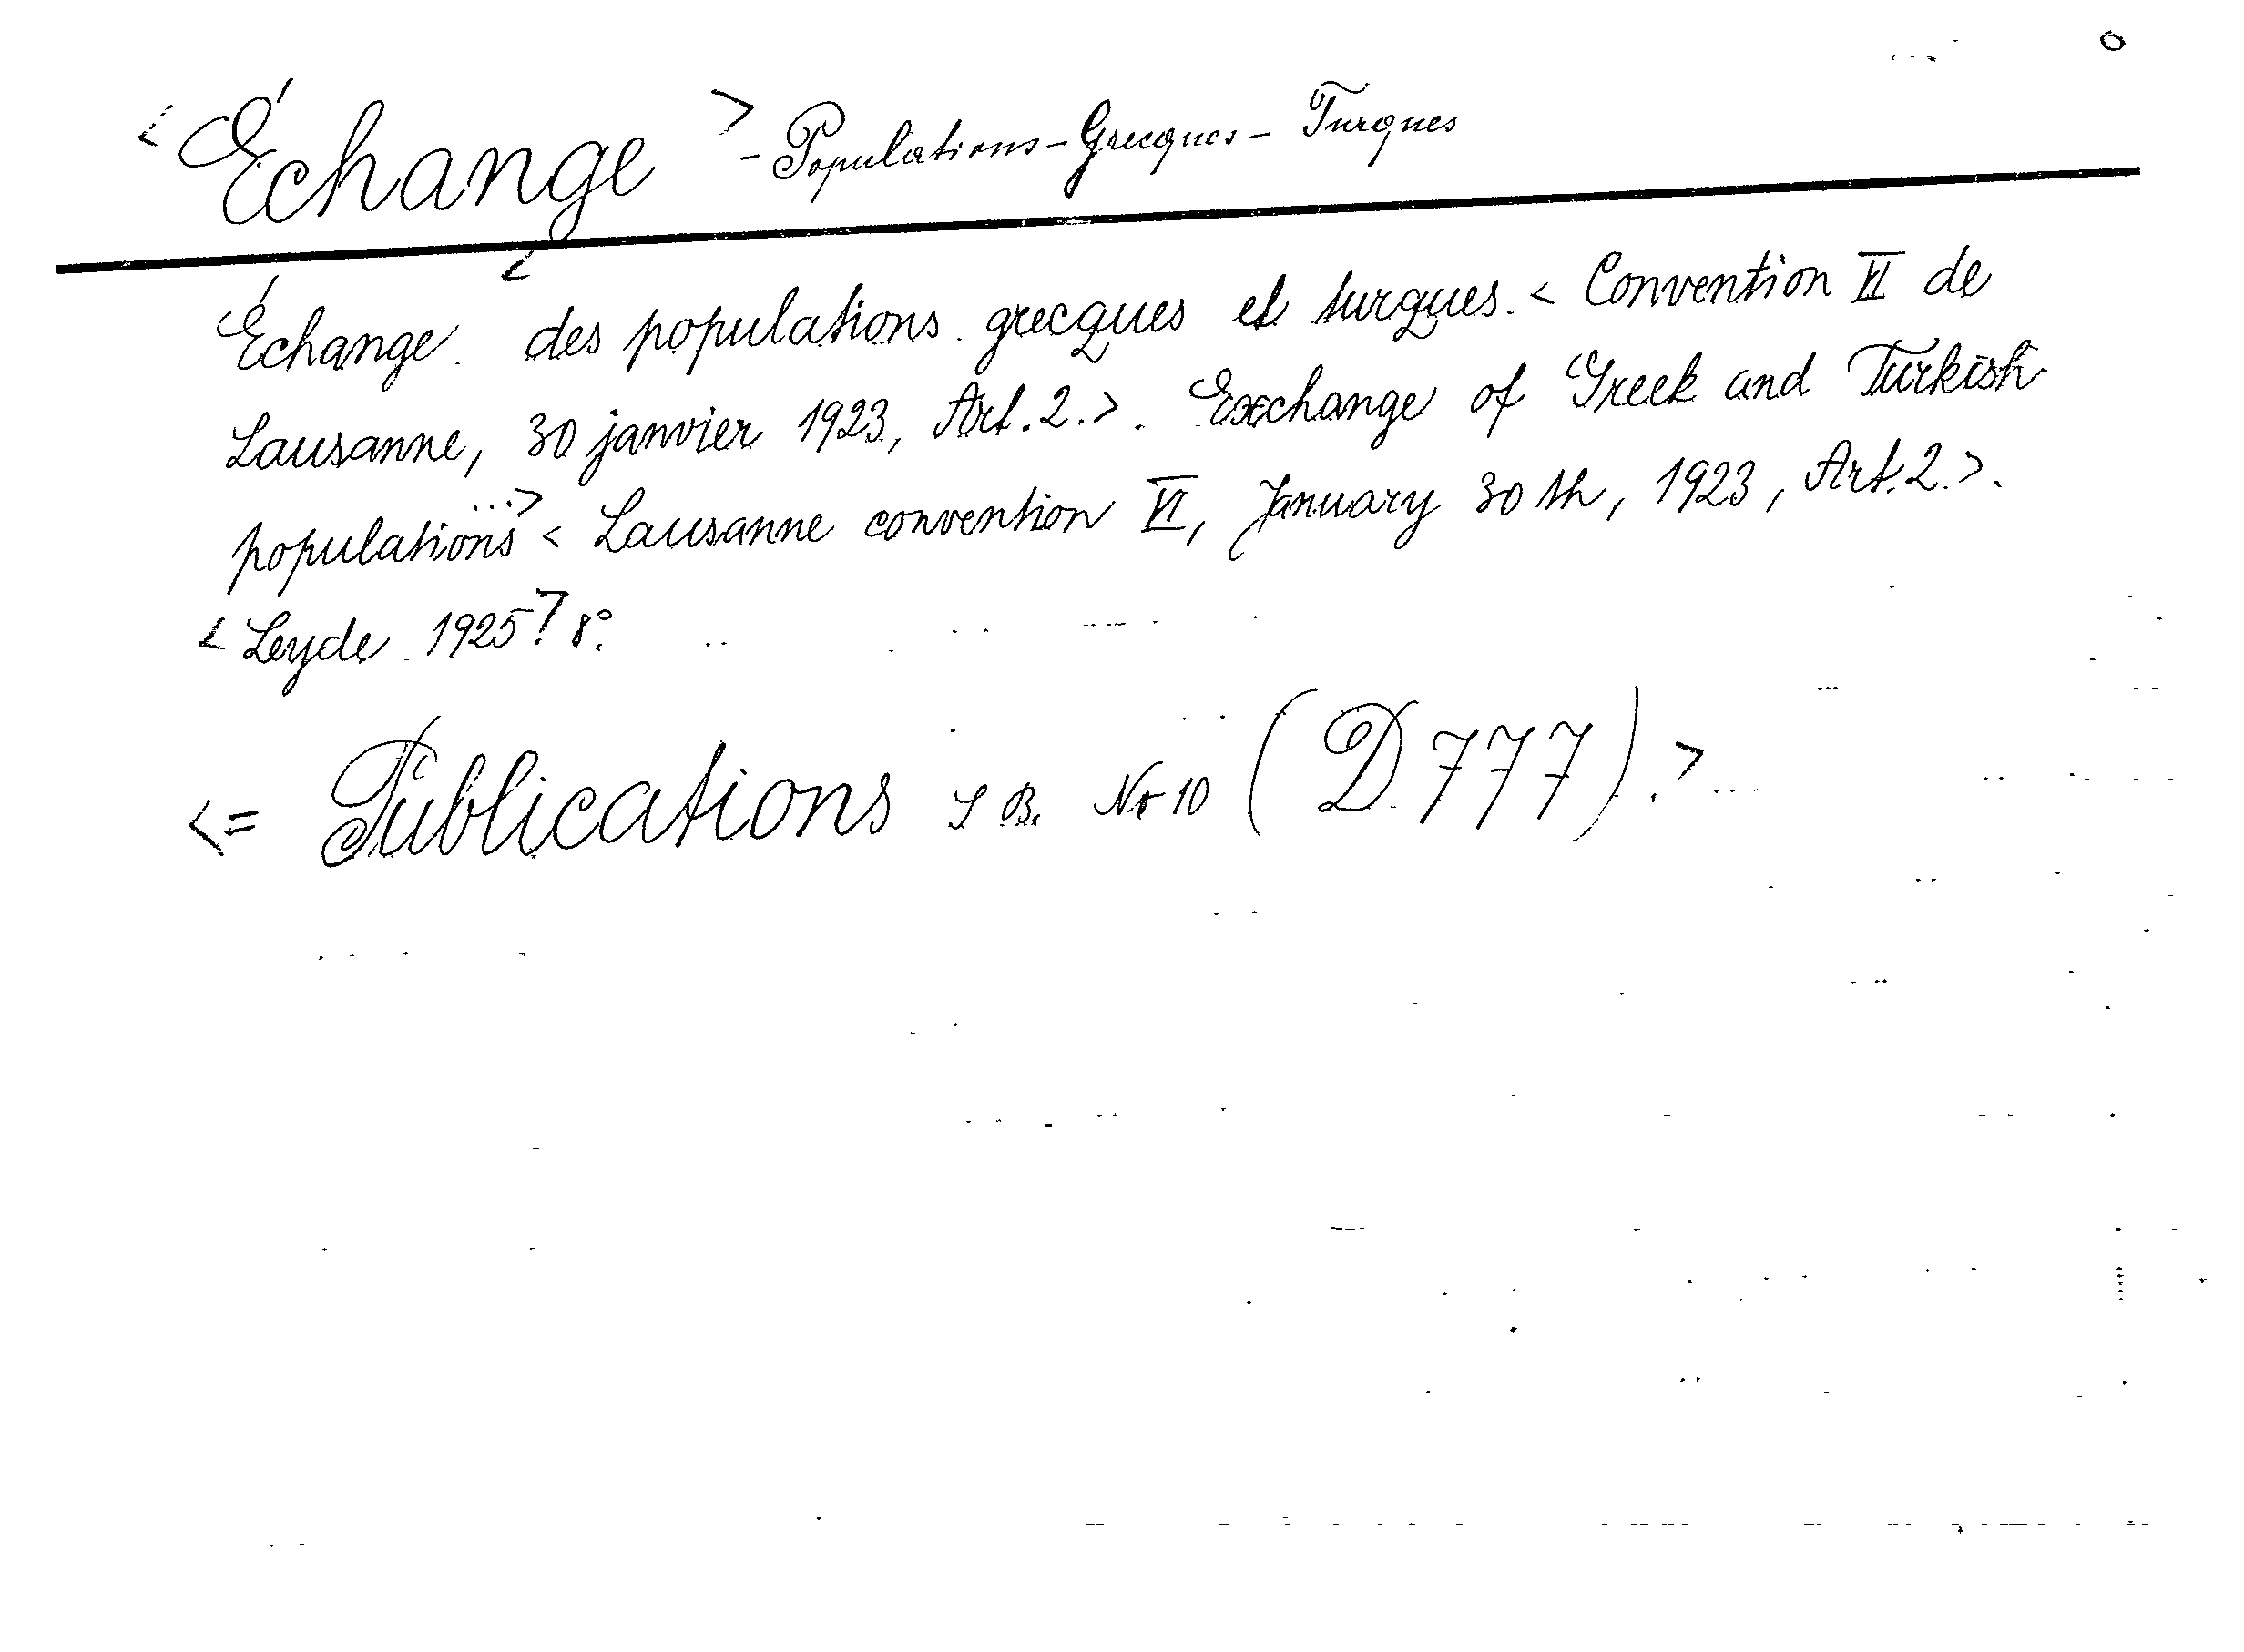 <Échange> - Populations - Grecques - Turques
Échange < des populations grecques et turques. < Convention VI de
Lausanne, 30 janvier 1923, Art. 2.>. Exchange of Greek and Turkish
populations ...> < Lausanne convention VI, January 30th, 1923, Art. 2.>.
< Leyde 1925? 8°.
<= Publications S B. Nr 10 (D 777).>